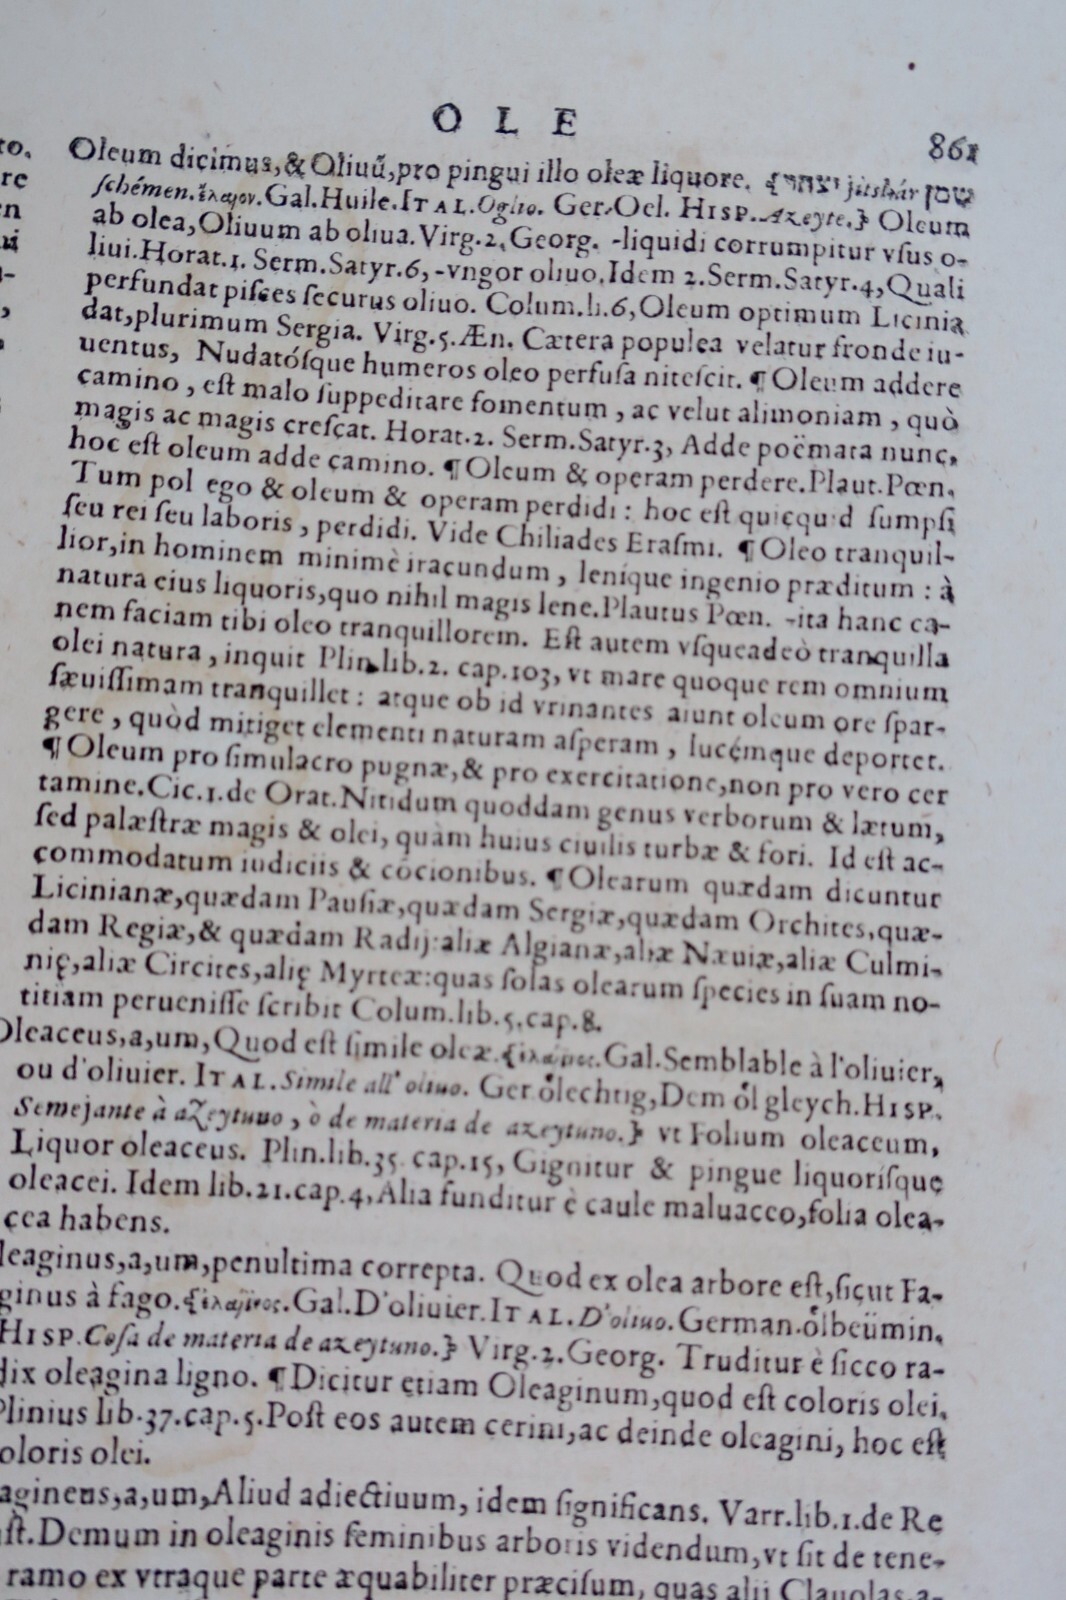 OLE
861
Oleum dicimus, & Oliuũ, pro pingui illo oleæ liquore. {יצהר jitshár שמן
ſchémen. ἔλαιον. Gal. Huile. ITAL. Oglio. Ger. Oel. HISP. Azeyte.} Oleum
ab olea, Oliuum ab oliua. Virg. 2. Georg. -liquidi corrumpitur vſus o-
liui. Horat. 1. Serm. Satyr. 6, -vngor oliuo. Idem 2. Serm. Satyr. 4, Quali
perfundat piſces ſecurus oliuo. Colum. li. 6, Oleum optimum Licinia
dat, plurimum Sergia. Virg. 5. Æn. Cætera populea velatur fronde iu-
uentus, Nudatóſque humeros oleo perfuſa niteſcit. ¶ Oleum addere
camino, eſt malo ſuppeditare fomentum, ac velut alimoniam, quò
magis ac magis creſcat. Horat. 2. Serm. Satyr. 3, Adde poëmata nunc,
hoc eſt oleum adde camino. ¶ Oleum & operam perdere. Plaut. Pœn.
Tum pol ego & oleum & operam perdidi: hoc eſt quicquid ſumpſi
ſeu rei ſeu laboris, perdidi. Vide Chiliades Eraſmi. ¶ Oleo tranquil-
lior, in hominem minimè iracundum, leníque ingenio præditum: à
natura eius liquoris, quo nihil magis lene. Plautus Pœn. -ita hanc ca-
nem faciam tibi oleo tranquillorem. Eſt autem vſqueadeò tranquilla
olei natura, inquit Plin. lib. 2. cap. 103, vt mare quoque rem omnium
ſæuiſſimam tranquillet: atque ob id vrinantes aiunt oleum ore ſpar-
gere, quòd mitiget elementi naturam aſperam, lucémque deportet.
¶ Oleum pro ſimulacro pugnæ, & pro exercitatione, non pro vero cer
tamine. Cic. 1. de Orat. Nitidum quoddam genus verborum & lætum,
ſed palæſtræ magis & olei, quàm huius ciuilis turbæ & fori. Id eſt ac-
commodatum iudiciis & cócionibus. ¶ Olearum quædam dicuntur
Licinianæ, quædam Pauſiæ, quædam Sergiæ, quædam Orchites, quæ-
dam Regiæ, & quædam Radij: aliæ Algianæ, aliæ Næuiæ, aliæ Culmi-
nię, aliæ Circites, alię Myrteæ: quas ſolas olearum ſpecies in ſuam no-
titiam perueniſſe ſcribit Colum. lib. 5. cap. 8.
Oleaceus, a, um, Quod eſt ſimile oleæ. Gal. Semblable à l'oliuier,
ou d'oliuier. ITAL. Simile all' oliuo. Ger. ölechtig, Dem öl gleych. HISP.
Semejante à azeytuno, ò de materia de azeytuno.} vt Folium oleaceum,
Liquor oleaceus. Plin. lib. 35. cap. 15, Gignitur & pingue liquoriſque
oleacei. Idem lib. 21. cap. 4, Alia funditur è caule maluaceo, folia olea-
cea habens.
leaginus, a, um, penultima correpta. Quod ex olea arbore eſt, ſicut Fa-
ginus à fago. {ἐλαϊνος. Gal. D'oliuier. ITAL. D'oliuo. German. ölbeümin.
HISP. Coſa de materia de azeytuno.} Virg. 2. Georg. Truditur è ſicco ra-
dix oleagina ligno. ¶ Dicitur etiam Oleaginum, quod eſt coloris olei.
Plinius lib. 37. cap. 5. Poſt eos autem cerini, ac deinde oleagini, hoc eſt
oloris olei.
agineus, a, um, Aliud adiectiuum, idem ſignificans. Varr. lib. 1. de Re
ſt. Demum in oleaginis ſeminibus arboris videndum, vt ſit de tene-
ramo ex vtraque parte æquabiliter præciſum, quas alij Clauolas, a-